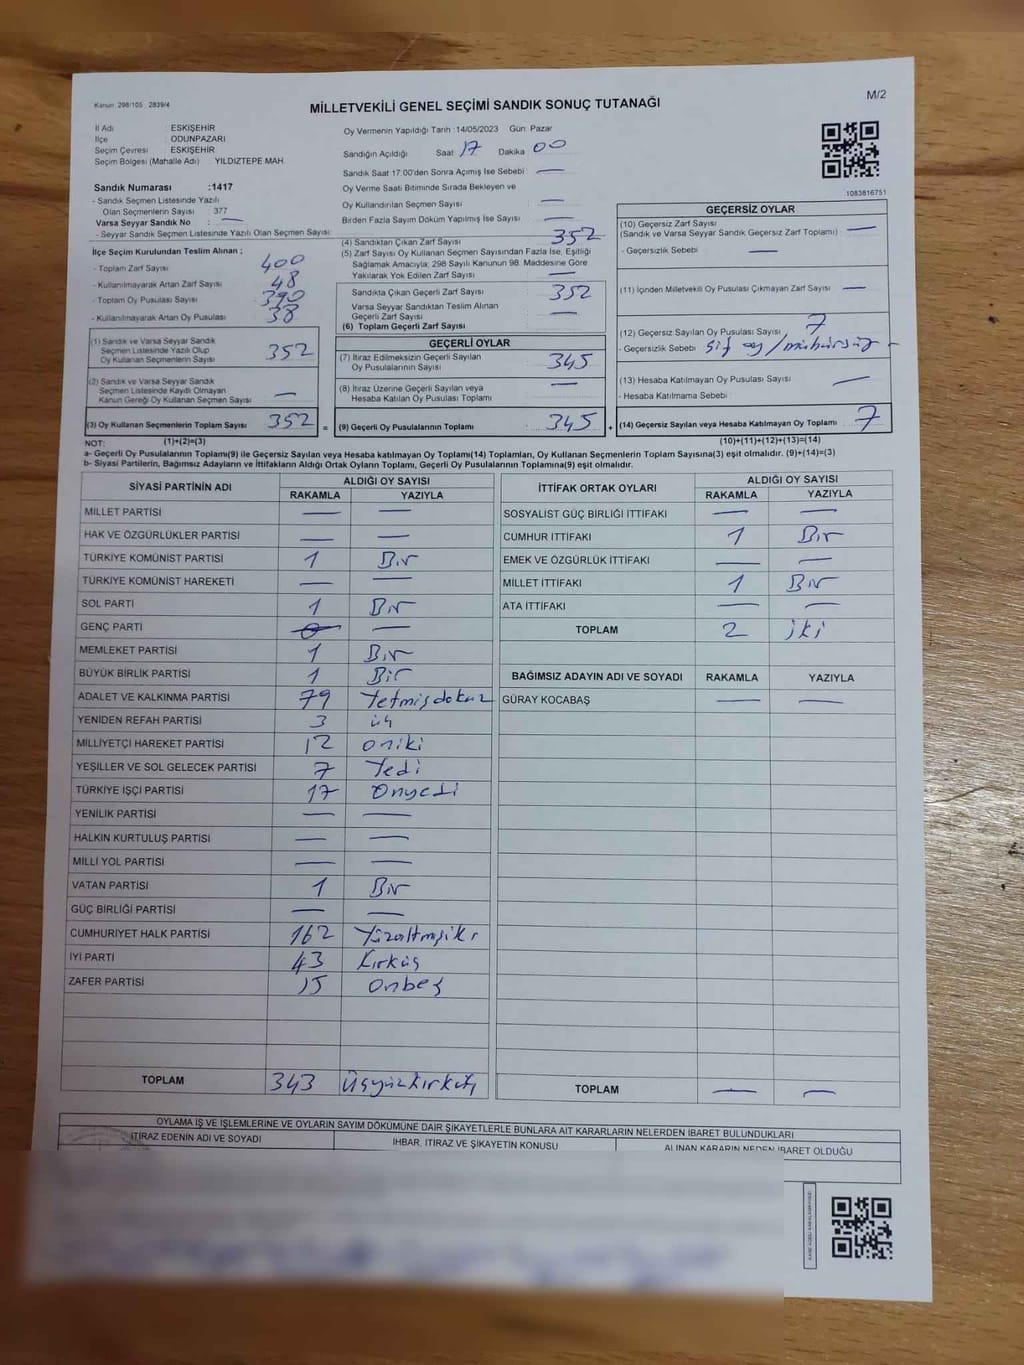 Kanun: 298/105 2839/4
M/2
MİLLETVEKİLİ GENEL SEÇİMİ SANDIK SONUÇ TUTANAĞI
İl Adı : ESKİŞEHİR
İlçe : ODUNPAZARI
Seçim Çevresi : ESKİŞEHİR
Seçim Bölgesi (Mahalle Adı) : YILDIZTEPE MAH.
Sandık Numarası :1417
- Sandık Seçmen Listesinde Yazılı
Olan Seçmenlerin Sayısı : 377
Varsa Seyyar Sandık No : —
- Seyyar Sandık Seçmen Listesinde Yazılı Olan Seçmen Sayısı:
Oy Vermenin Yapıldığı Tarih :14/05/2023 Gün: Pazar
Sandığın Açıldığı Saat 17 Dakika 00
Sandık Saat 17:00'den Sonra Açımış İse Sebebi : —
Oy Verme Saati Bitiminde Sırada Bekleyen ve
Oy Kullandırılan Seçmen Sayısı —
Birden Fazla Sayım Döküm Yapılmış İse Sayısı —
1083816751
İlçe Seçim Kurulundan Teslim Alınan ;
- Toplam Zarf Sayısı 400
- Kullanılmayarak Artan Zarf Sayısı 48
- Toplam Oy Pusulası Sayısı 390
- Kullanılmayarak Artan Oy Pusulası 38
(1) Sandık ve Varsa Seyyar Sandık
Seçmen Listesinde Yazılı Olup
Oy Kullanan Seçmenlerin Sayısı 352
(2) Sandık ve Varsa Seyyar Sandık
Seçmen Listesinde Kayıtlı Olmayan
Kanun Gereği Oy Kullanan Seçmen Sayısı —
(3) Oy Kullanan Seçmenlerin Toplam Sayısı 352 =
(4) Sandıktan Çıkan Zarf Sayısı 352
(5) Zarf Sayısı Oy Kullanan Seçmen Sayısından Fazla İse, Eşitliği
Sağlamak Amacıyla; 298 Sayılı Kanunun 98. Maddesine Göre
Yakılarak Yok Edilen Zarf Sayısı —
Sandıkta Çıkan Geçerli Zarf Sayısı 352
Varsa Seyyar Sandıktan Teslim Alınan
Geçerli Zarf Sayısı —
(6) Toplam Geçerli Zarf Sayısı
GEÇERLİ OYLAR
(7) İtiraz Edilmeksizin Geçerli Sayılan
Oy Pusulalarının Sayısı 345
(8) İtiraz Üzerine Geçerli Sayılan veya
Hesaba Katılan Oy Pusulası Toplamı —
(9) Geçerli Oy Pusulalarının Toplamı 345 +
GEÇERSİZ OYLAR
(10) Geçersiz Zarf Sayısı
(Sandık ve Varsa Seyyar Sandık Geçersiz Zarf Toplamı) —
- Geçersizlik Sebebi —
(11) İçinden Milletvekili Oy Pusulası Çıkmayan Zarf Sayısı —
(12) Geçersiz Sayılan Oy Pusulası Sayısı 7
- Geçersizlik Sebebi
(13) Hesaba Katılmayan Oy Pusulası Sayısı —
- Hesaba Katılmama Sebebi
(14) Geçersiz Sayılan veya Hesaba Katılmayan Oy Toplamı 7
NOT: (1)+(2)=(3) (10)+(11)+(12)+(13)=(14)
a- Geçerli Oy Pusulalarının Toplamı(9) ile Geçersiz Sayılan veya Hesaba katılmayan Oy Toplamı(14) Toplamları, Oy Kullanan Seçmenlerin Toplam Sayısına(3) eşit olmalıdır. (9)+(14)=(3)
b- Siyasi Partilerin, Bağımsız Adayların ve İttifakların Aldığı Ortak Oyların Toplamı, Geçerli Oy Pusulalarının Toplamına(9) eşit olmalıdır.
SİYASİ PARTİNİN ADI ALDIĞI OY SAYISI
RAKAMLA YAZIYLA
MİLLET PARTİSİ — —
HAK VE ÖZGÜRLÜKLER PARTİSİ — —
TÜRKİYE KOMÜNİST PARTİSİ 1 Bir
TÜRKİYE KOMÜNİST HAREKETİ — —
SOL PARTİ 1 Bir
GENÇ PARTİ —
MEMLEKET PARTİSİ 1 Bir
BÜYÜK BİRLİK PARTİSİ 1 Bir
ADALET VE KALKINMA PARTİSİ 79 Yetmişdokuz
YENİDEN REFAH PARTİSİ 3 üç
MİLLİYETÇİ HAREKET PARTİSİ 12 oniki
YEŞİLLER VE SOL GELECEK PARTİSİ 7 Yedi
TÜRKİYE İŞÇİ PARTİSİ 17 Onyedi
YENİLİK PARTİSİ — —
HALKIN KURTULUŞ PARTİSİ — —
MİLLİ YOL PARTİSİ — —
VATAN PARTİSİ 1 Bir
GÜÇ BİRLİĞİ PARTİSİ — —
CUMHURİYET HALK PARTİSİ 162 Yüzaltmışiki
İYİ PARTİ 43 Kırküç
ZAFER PARTİSİ 15 onbeş
TOPLAM 343 Üçyüzkırküç
İTTİFAK ORTAK OYLARI ALDIĞI OY SAYISI
RAKAMLA YAZIYLA
SOSYALİST GÜÇ BİRLİĞİ İTTİFAKI — —
CUMHUR İTTİFAKI 1 Bir
EMEK VE ÖZGÜRLÜK İTTİFAKI — —
MİLLET İTTİFAKI 1 Bir
ATA İTTİFAKI — —
TOPLAM 2 iki
BAĞIMSIZ ADAYIN ADI VE SOYADI RAKAMLA YAZIYLA
GÜRAY KOCABAŞ — —
TOPLAM — —
OYLAMA İŞ VE İŞLEMLERİNE VE OYLARIN SAYIM DÖKÜMÜNE DAİR ŞİKAYETLERLE BUNLARA AİT KARARLARIN NELERDEN İBARET BULUNDUKLARI
İTİRAZ EDENİN ADI VE SOYADI İHBAR, İTİRAZ VE ŞİKAYETİN KONUSU ALINAN KARARIN NEDEN İBARET OLDUĞU